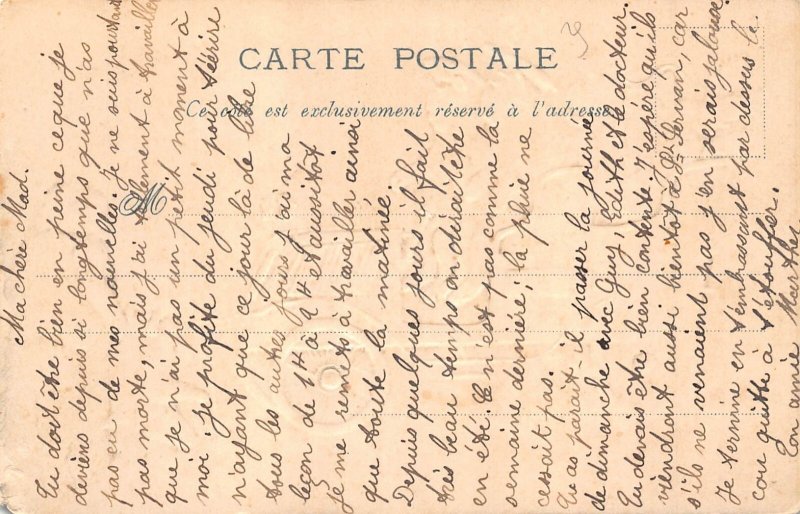 CARTE POSTALE
Ce côté est exclusivement réservé à l'adresse
M
Ma chère Mad.
Tu dois être bien en peine ce que je
deviens depuis si longtemps que n'as
pas eu de mes nouvelles. Je ne suis pourtant
pas morte, mais j'ai tellement à travailler
que je n'ai pas un petit moment à
moi. Je profite du jeudi pour t'écrire
n'ayant que ce jour là de libre
tous les autres jours j'ai ma
leçon de 1H à 2H et aussitôt
je me remets à travailler ainsi
que toute la matinée.
Depuis quelques jours il fait
très beau temps on dirait être
en été. Ce n'est pas comme la
semaine dernière; la pluie ne
cessait pas.
Tu as paraît-il passer la journée
de dimanche avec Guy, Edith et le docteur.
Tu devais être bien contente. J'espère qu'ils
viendront aussi bientôt à St Servan, car
s'ils ne venaient pas j'en serais jalouse.
Je termine en t'embrassant par dessus le
cou quitte à t'étouffer.
Ton amie Marthe